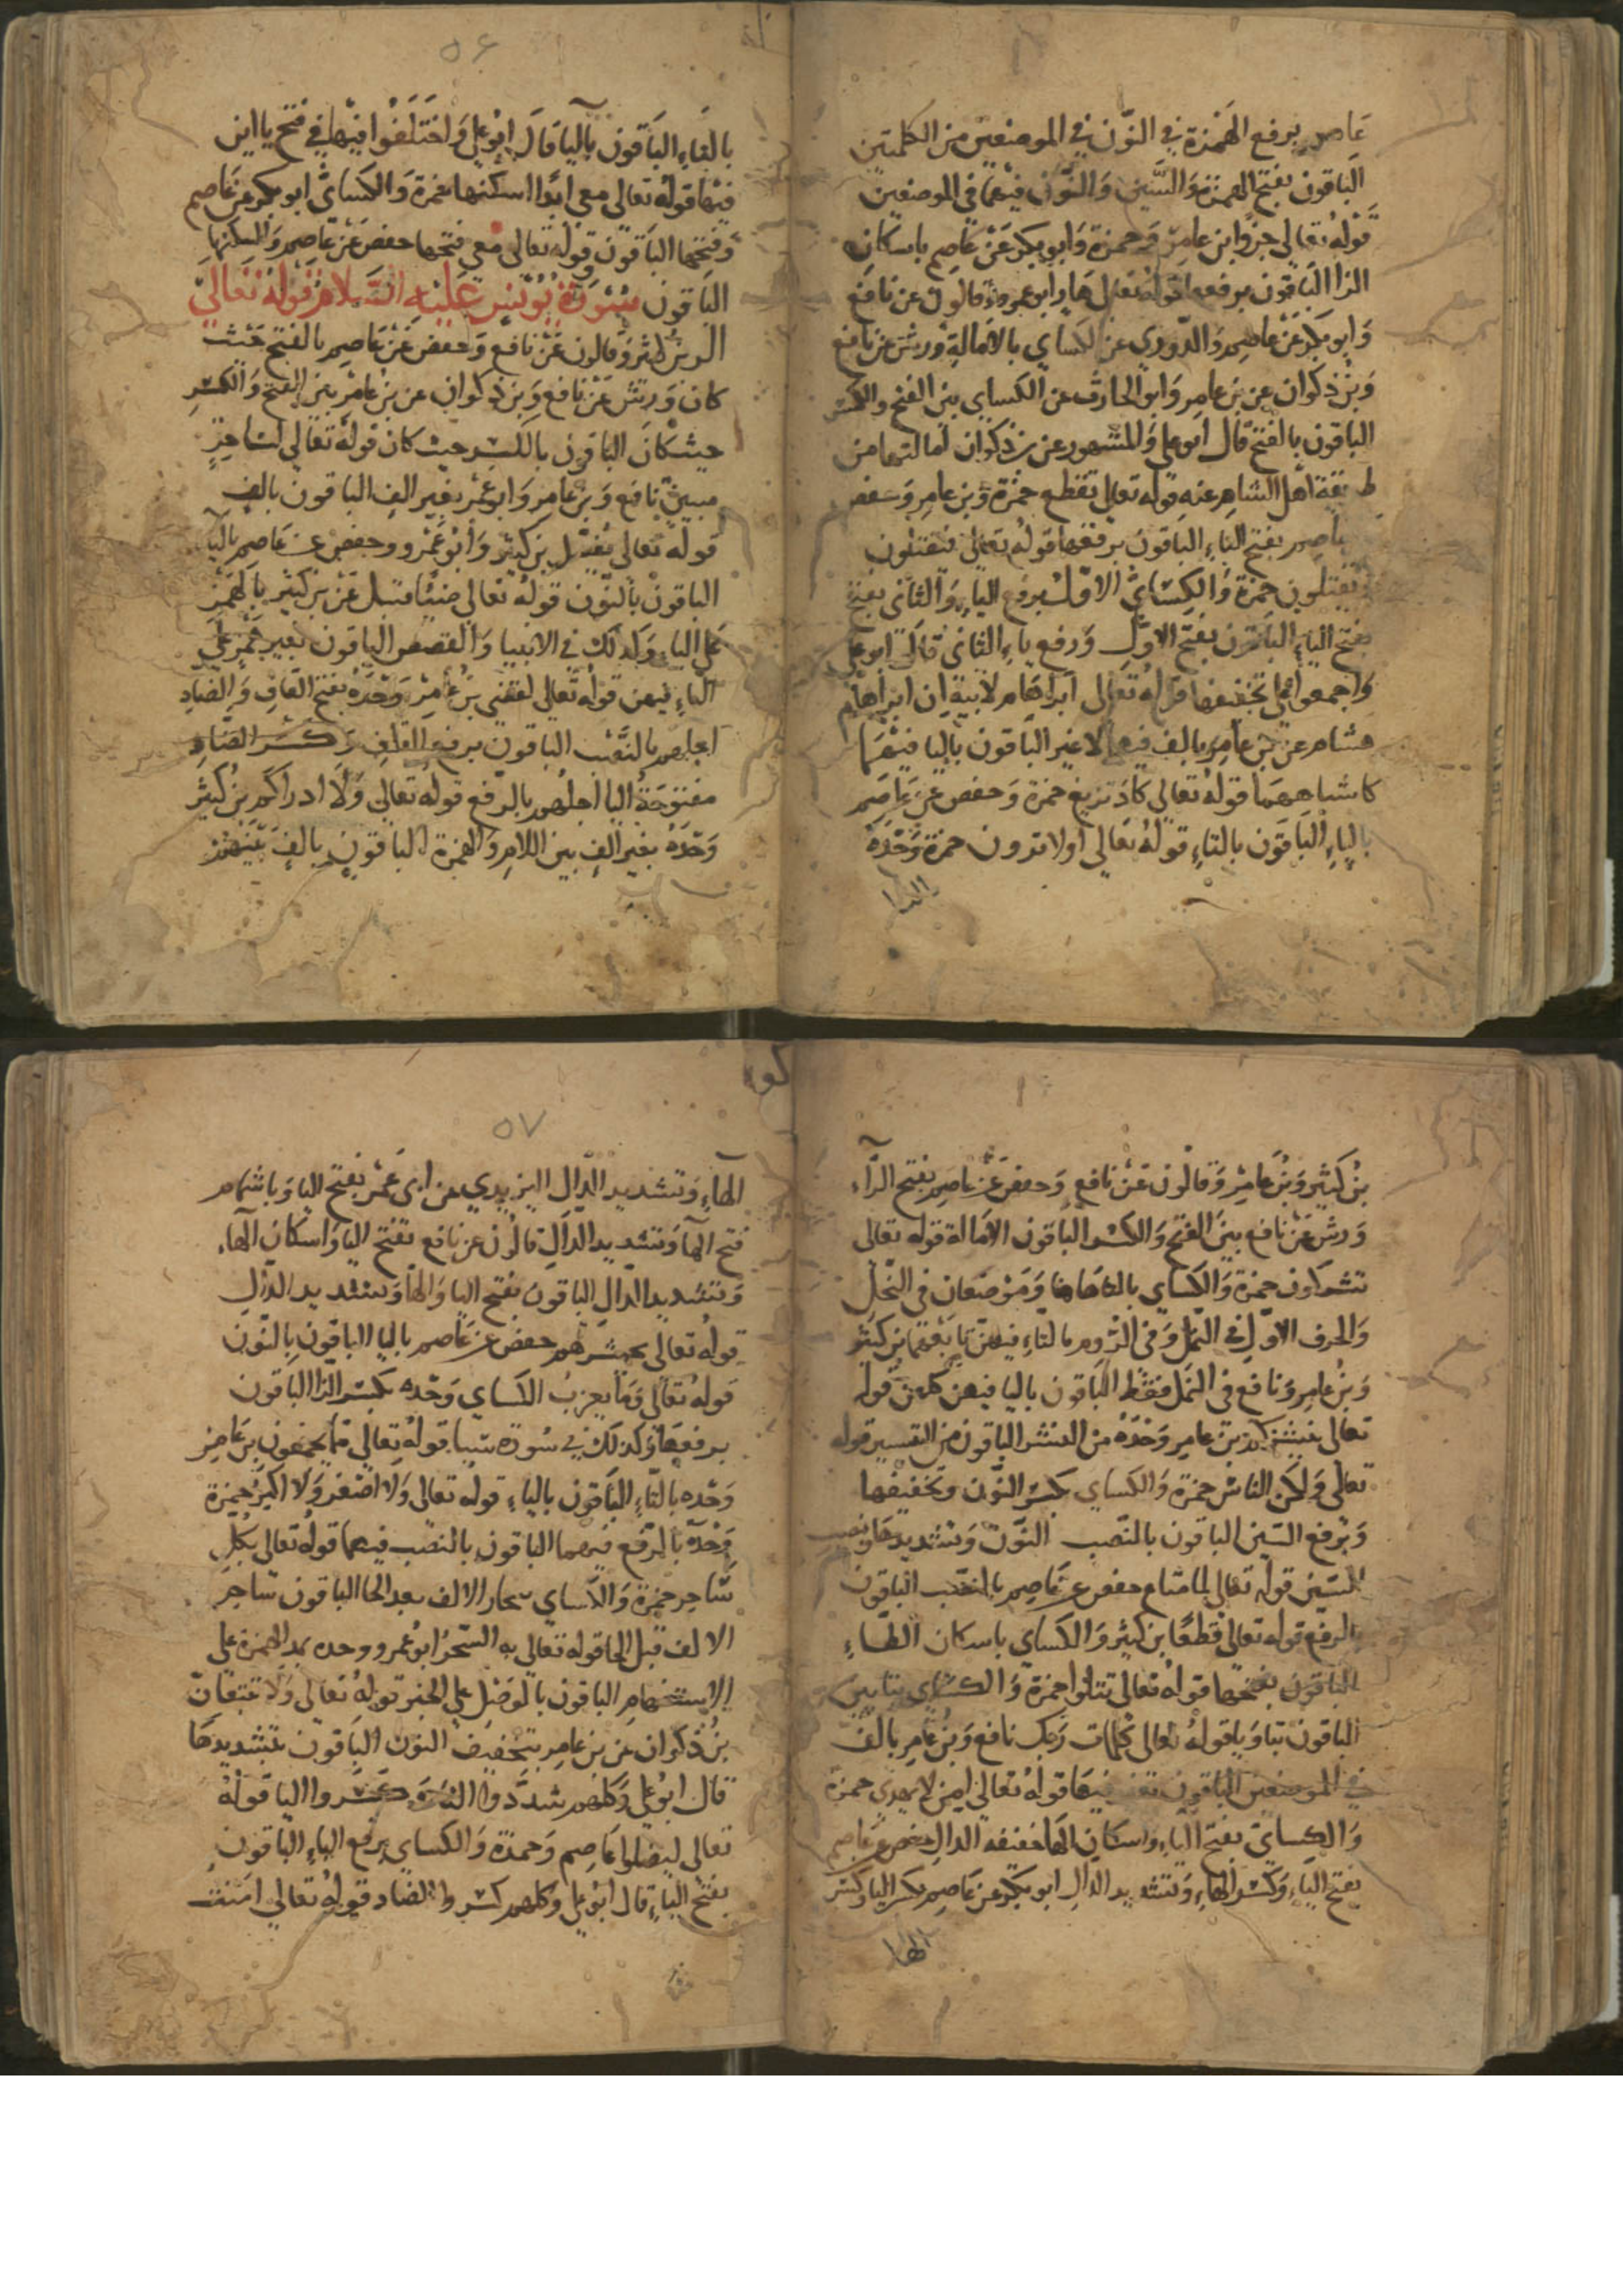 عاصم برفع الهمزة في النون في الموضعين من الكلمتين
الباقون بفتح الهمزة والسين والنون فيهما في الموضعين
قوله تعالى جرف ابن عامر وحمزة وابو بكر عن عاصم باسكان
الرا الباقون برفعها قوله تعالى هار ابو عمرو وقالون عن نافع
وابو بكر عن عاصم والدوري عن الكساي بالامالة ورش عن نافع
وبن ذكوان عن بن عامر وابو الحارث عن الكساي بين الفتح والكسر
الباقون بالفتح قال ابو علي والمشهور عن بن ذكوان امالتها من
طريقة اهل الشام عنه قوله تعالى تقطع حمزة وبن عامر وحفص
عاصم بفتح التاء الباقون برفعها قوله تعالى فيقتلون
ويقتلون حمزة والكساي الاول برفع الياء والثاني بفتح
بفتح الياء الباقون بفتح الاول ورفع ياء الثاني قال ابو علي
واجمعوا على تخفيفها قوله تعالى ابراهام لابيه ان ابراهام
هشام عن بن عامر بالف فيهما لا غير الباقون باليا فيهما
كاشباههما قوله تعالى كاد تزيغ حمزة وحفص عن عاصم
بالياء الباقون بالتاء قوله تعالى اولا ترون حمزة وحده
٥٦
بالتاء الباقون باليا قال ابو علي واختلفوا فيها في فتح يااين
فيها قوله تعالى معي ابدا اسكنها حمزة والكساي ابو بكر عن عاصم
وفتحها الباقون قوله تعالى معي فتحها حفص عن عاصم واسكنها
الباقون سورة يونس عليه السلام قوله تعالى
الر بن كثير وقالون عن نافع وحفص عن عاصم بالفتح حيث
كان ورش عن نافع وبن ذكوان عن بن عامر بين الفتح والكسر
حيث كان الباقون بالكسر حيث كان قوله تعالى لساحر
مبين نافع وبن عامر وابو عمر بغير الف الباقون بالف
قوله تعالى يفصل بن كثير وابو عمرو وحفص عن عاصم باليا
الباقون بالنون قوله تعالى ضئا قنبل عن بن كثير بالهمز
على الياء وكذلك في الانبيا والقصص الباقون بغير همز على
الياء فيهن قوله تعالى لقضي بن عامر وحده بفتح القاف والضاد
اجلهم بالنصب الباقون برفع القاف وكسر الضاد
مفتوحة اليا اجلهم بالرفع قوله تعالى ولا ادراكم بن كثير
وحده بغير الف بين اللام والهمزة الباقون بالف بينهما
بن كثير وبن عامر وقالون عن نافع وحفص عن عاصم بفتح الراء
ورش عن نافع بين الفتح والكسر الباقون الامالة قوله تعالى
تشركون حمزة والكساي بالتا هاهنا وموضعان في النحل
والحرف الاول في النمل وفي الروم بالتاء فيهن تابعهما بن كثير
وبن عامر ونافع في النمل فقط الباقون باليا فيهن كلهن قوله
تعالى ينشركم بن عامر وحده من النشر الباقون من التسيير قوله
تعالى ولكن الناس حمزة والكساي بكسر النون وتخفيفها
وبرفع السين الباقون بالنصب النون وتشديدها ونصب
السين قوله تعالى متاع حفص عن عاصم بالنصب الباقون
بالرفع قوله تعالى قطعا بن كثير والكساي باسكان الطاء
الباقون بفتحها قوله تعالى تتلوا حمزة والكساي بتايين
الباقون بتا وبا قوله تعالى كلمات ربك نافع وبن عامر بالف
في الموضعين الباقون بغير فيها قوله تعالى امن لا يهدي حمزة
والكساي بفتح الياء واسكان الها خفيفه الدال حفص عن عاصم
بفتح الياء وكسر الهاء وتشديد الدال ابو بكر عن عاصم بكسر اليا وكسر
الها
٥٧
الهاء وتشديد الدال اليزيدي عن ابي عمر بفتح اليا وباشمام
فتح الها وتشديد الدال قالون عن نافع بفتح اليا واسكان الهاء
وتشديد الدال الباقون بفتح اليا والها وتشديد الدال
قوله تعالى يحشرهم حفص عن عاصم باليا الباقون بالنون
قوله تعالى وما يعزب الكساي وحده بكسر الزا الباقون
برفعها وكذلك في سورة سبا قوله تعالى مما يجمعون بن عامر
وحده بالتاء الباقون بالياء قوله تعالى ولا اصغر ولا اكبر حمزة
وحده بالرفع فيهما الباقون بالنصب فيهما قوله تعالى بكل
ساحر حمزة والكساي سحار الالف بعد الحا الباقون ساحر
الالف قبل الحا قوله تعالى به السحر ابو عمرو وحده بمد الهمزة على
الاستفهام الباقون بالوصل على الخبر قوله تعالى ولا تتبعان
بن ذكوان عن بن عامر بتخفيف النون الباقون بتشديدها
قال ابو علي وكلهم شددوا التا وكسروا البا قوله
تعالى ليضلوا عاصم وحمزة والكساي برفع الياء الباقون
بفتح الياء قال ابو علي وكلهم كسروا الضاد قوله تعالى امنت